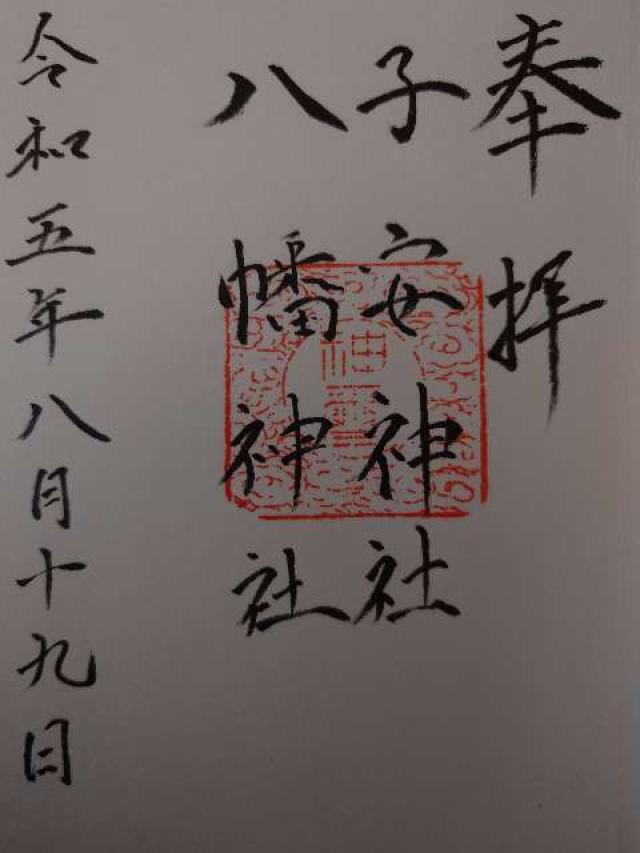 奉拝
子安神社
八幡神社
令和五年八月十九日